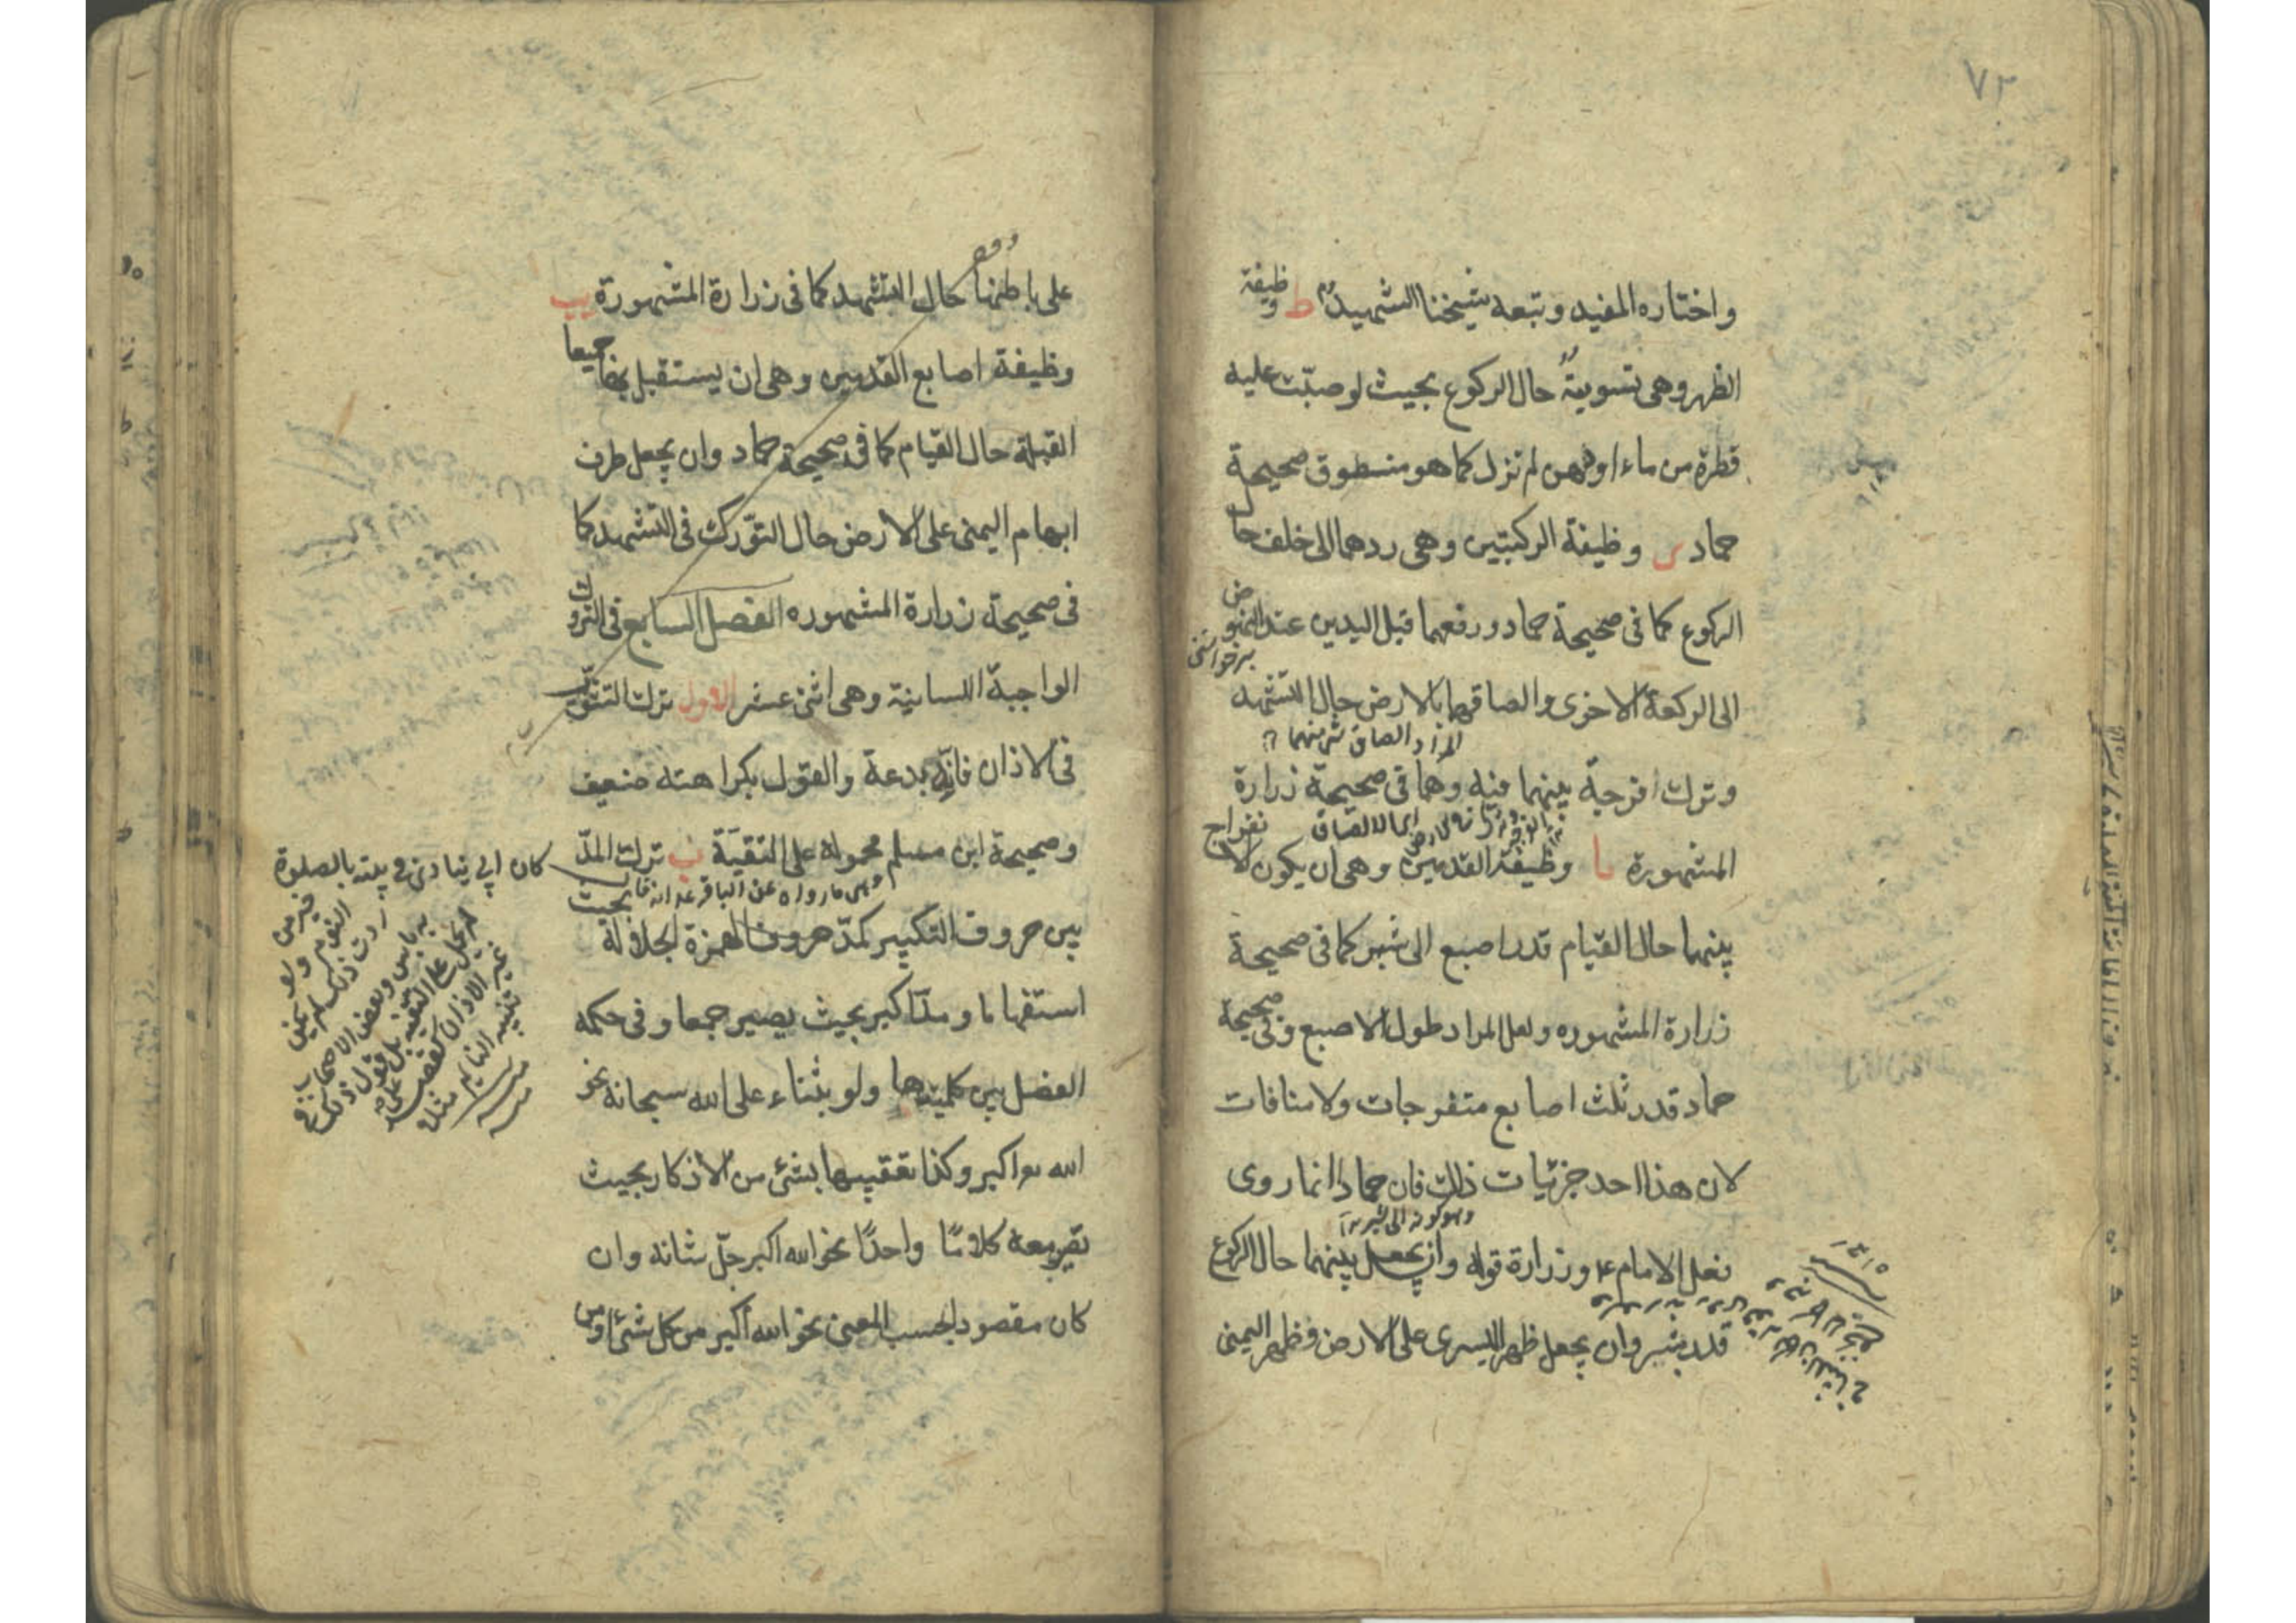 ٧٢
واختاره المفيد وتبعه شيخنا الشهيد ط وظيفة
الظهر وهى تسويته حال الركوع بحيث لو صبّت عليه
قطرة من ماء او دهن لم تزل كما هو منطوق صحيحة
حماد ى وظيفة الركبتين وهى ردهما الى خلف حال
الركوع كما فى صحيحة حماد ورفعهما قبل اليدين عند النهوض
برخواستن
الى الركعة الاخرى والصاقهما بالارض حال التشهد
المراد الصاق شئ منهما
وترك افرجة بينهما فيه وهما فى صحيحة زرارة
المشهورة يا وظيفة القدمين وهى ان يكون لا نفراج
بينهما حال القيام قدر اصبع الى شبر كما فى صحيحة
زرارة المشهوره ولعل المراد طول الاصبع وفى صحيحة
حماد قدر ثلث اصابع متفرجات ولا منافات
لان هذا احد جزئيات ذلك فان حمادا انما روى
وهو كونه الى شبر
فعل الامام ع وزرارة قوله وان يجعل بينهما حال الركوع
قدر شبر وان يجعل ظهر اليسرى على الارض وظهر اليمنى
على باطنها حال التشهد كما فى زرارة المشهورة يب
وظيفة اصابع القدمين وهى ان يستقبل بها جميعا
القبلة حال القيام كما فى صحيحة حماد وان يجعل طرف
ابهام اليمنى على الارض حال التورك فى التشهد كما
فى صحيحة زرارة المشهوره الفصل السابع فى التروك
الواجبة اللسانية وهى اثنى عشر الاول ترك التثويب
فى الاذان فانه بدعة والقول بكراهته ضعيف
وصحيحة ابن مسلم محمولة على التقية ب ترك المدّ
وهى ما رواه عن الباقر ع انه قال
بين حروف التكبير كمدّ حروف الهمزة الجلالة بحيث
استفهاما ومدّ اكبر بحيث يصير جمعا وفى حكمه
الفصل بين كلمتيها ولو بثناء على الله سبحانه نحو
الله تع اكبر وكذا تعقيبها بشئ من الاذكار بحيث
تصير معه كلامًا واحدًا نحو الله اكبر جلّ شانه وان
كان مقصودا بحسب المعنى نحو الله اكبر من كل شئ او من
كان ابى ينادى فى بيته بالصلوة
خير من النوم ولو
رددت ذلك لم يكن
به باس وبعض الاصحاب